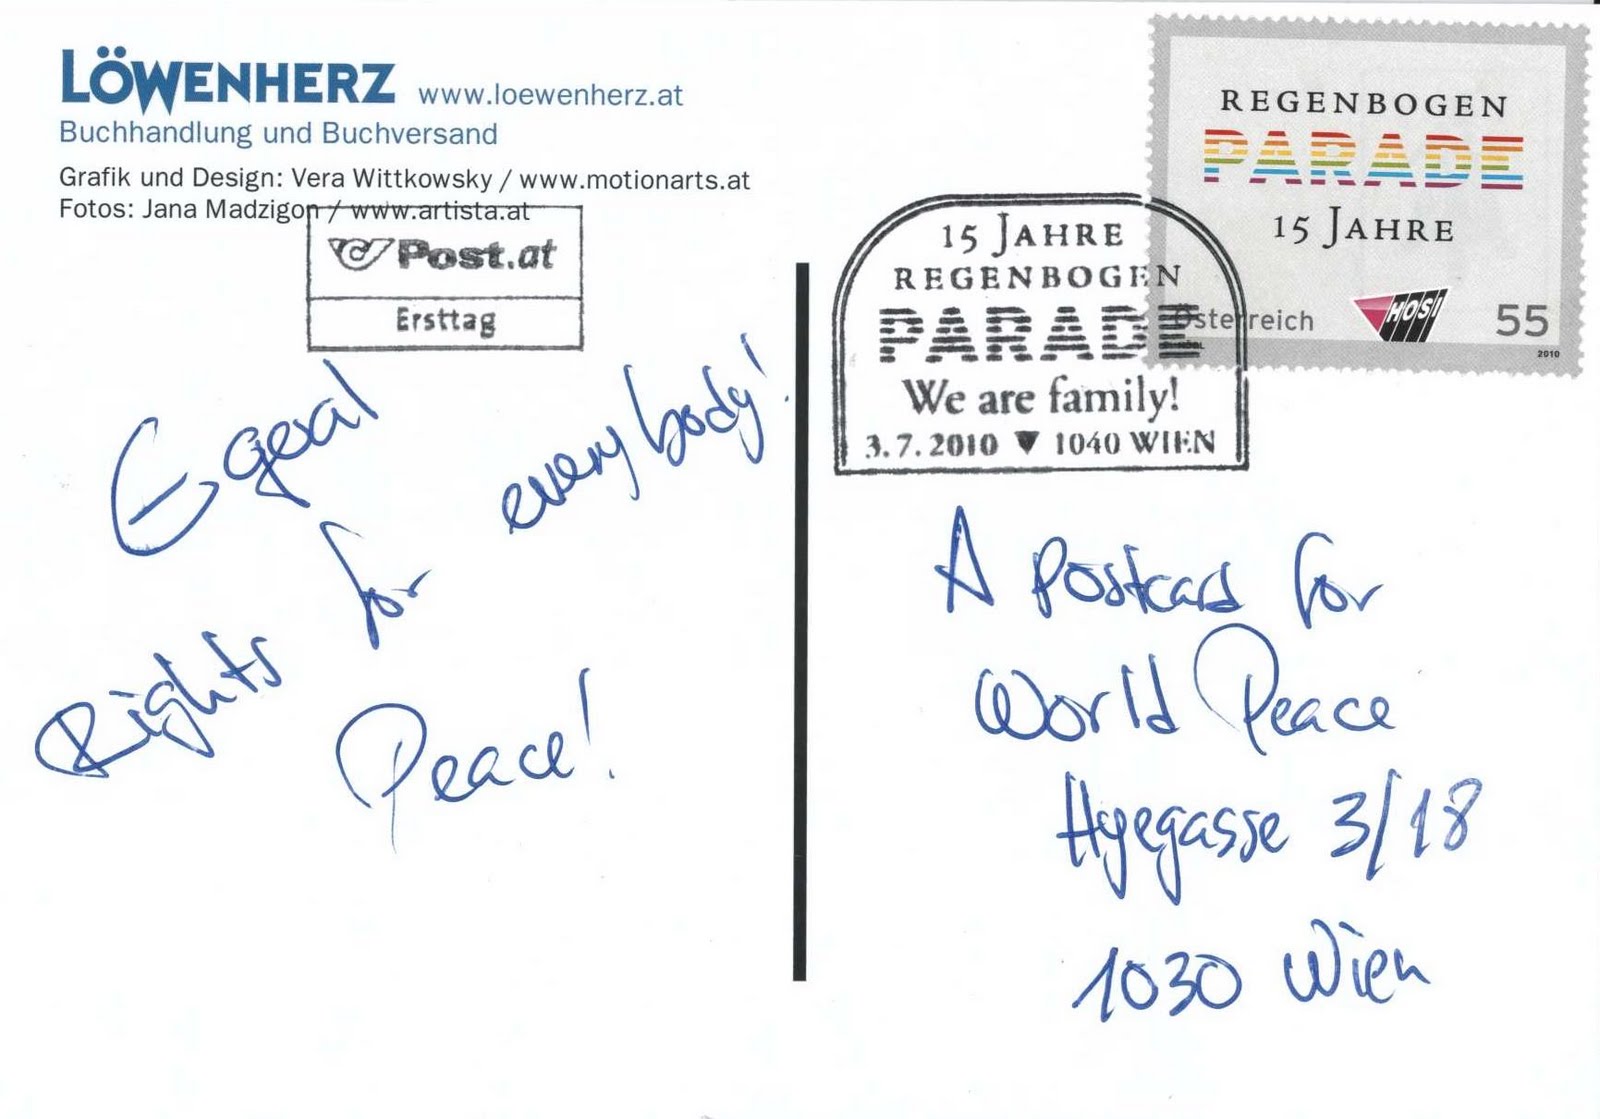 LÖWENHERZ www.loewenherz.at
Buchhandlung und Buchversand
Grafik und Design: Vera Wittkowsky / www.motionarts.at
Fotos: Jana Madzigon / www.artista.at
Post.at
Ersttag
15 JAHRE
REGENBOGEN
PARADE
We are family!
3.7.2010 ▼ 1040 WIEN
REGENBOGEN
PARADE
15 JAHRE
Österreich
HOSI
55
2010
Eqeal
Rights for everybody!
Peace!
A Postcard for
World Peace
Hyegasse 3/18
1030 Wien